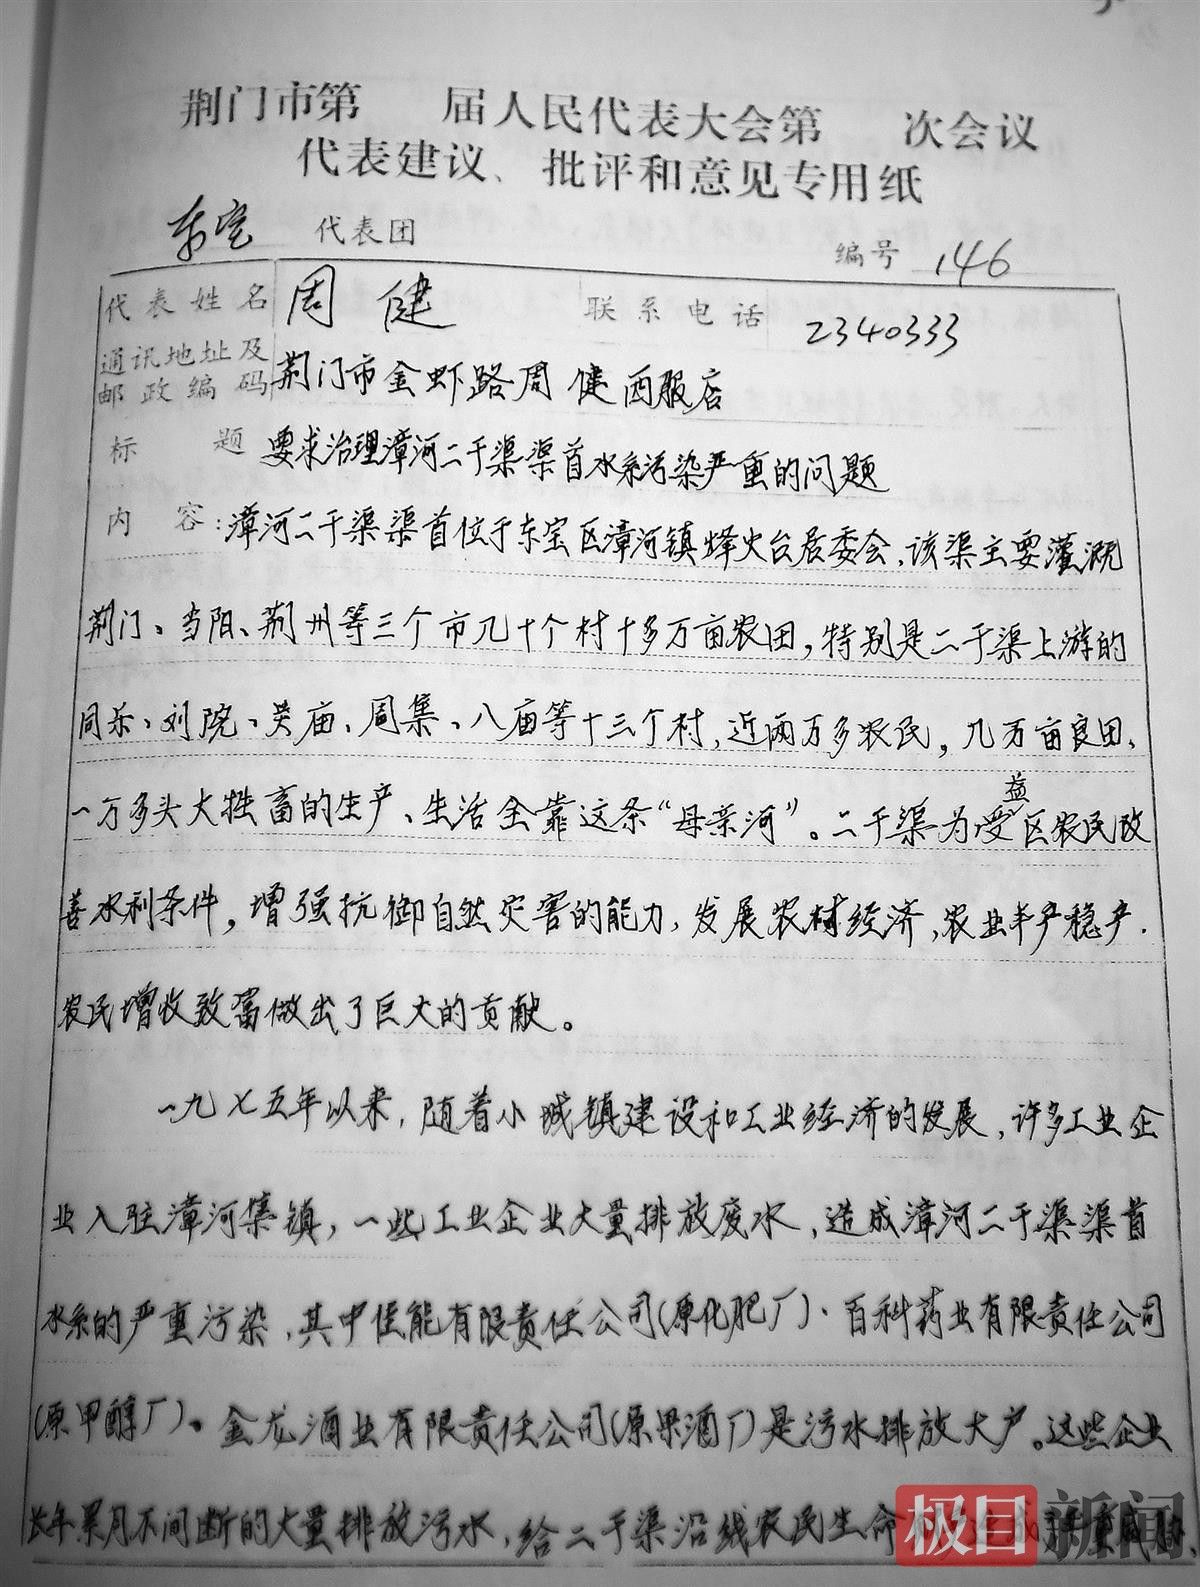 荆门市第 届人民代表大会第 次会议
代表建议、批评和意见专用纸
东宝 代表团
编号 146
代表姓名 周健 联系电话 2340333
通讯地址及
邮政编码 荆门市金虾路周健西服店
标题 要求治理漳河二干渠渠首水系污染严重的问题
内容：漳河二干渠渠首位于东宝区漳河镇烽火台居委会，该渠主要灌溉
荆门、当阳、荆州等三个市几十个村十多万亩农田，特别是二干渠上游的
同乐、刘院、关庙、周集、八庙等十三个村，近两万多农民，几万亩良田、
一万多头大牲畜的生产、生活全靠这条“母亲河”。二干渠为受益区农民改
善水利条件，增强抗御自然灾害的能力，发展农村经济，农业丰产稳产.
农民增收致富做出了巨大的贡献。
一九七五年以来，随着小城镇建设和工业经济的发展，许多工业企
业入驻漳河集镇，一些工业企业大量排放废水，造成漳河二干渠渠首
水系的严重污染，其中佳能有限责任公司(原化肥厂)、百科药业有限责任公司
(原甲醇厂)、金龙酒业有限责任公司(原果酒厂)是污水排放大户。这些企业
长年累月不间断的大量排放污水，给二干渠沿线农民生命
极目新闻